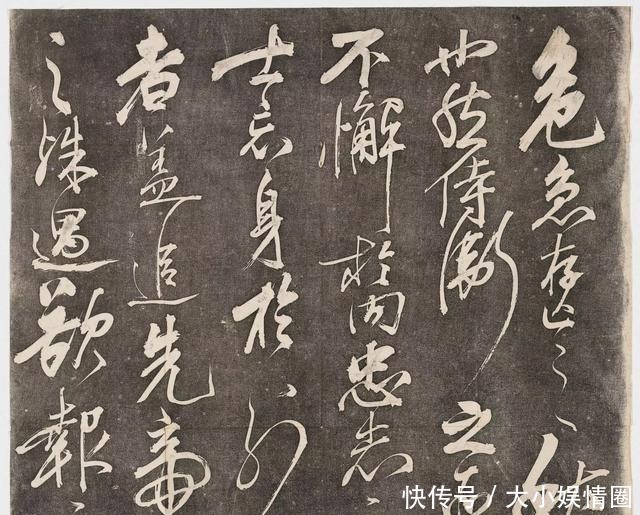 危急存亡之秋
也然侍衛之臣
不懈於內忠志
士忘身於外
者蓋追先帝
之殊遇欲報
快传号 / 大小娱情圈